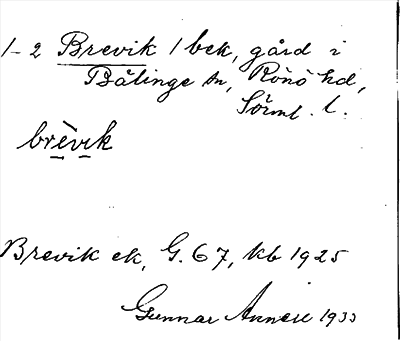 1-2 Brevik 1 bek, gård i
Bälinge sn, Rönö hd,
Sörml. l.
brèvik
Brevik ek, G. 67, kb 1925
Gunnar 1933